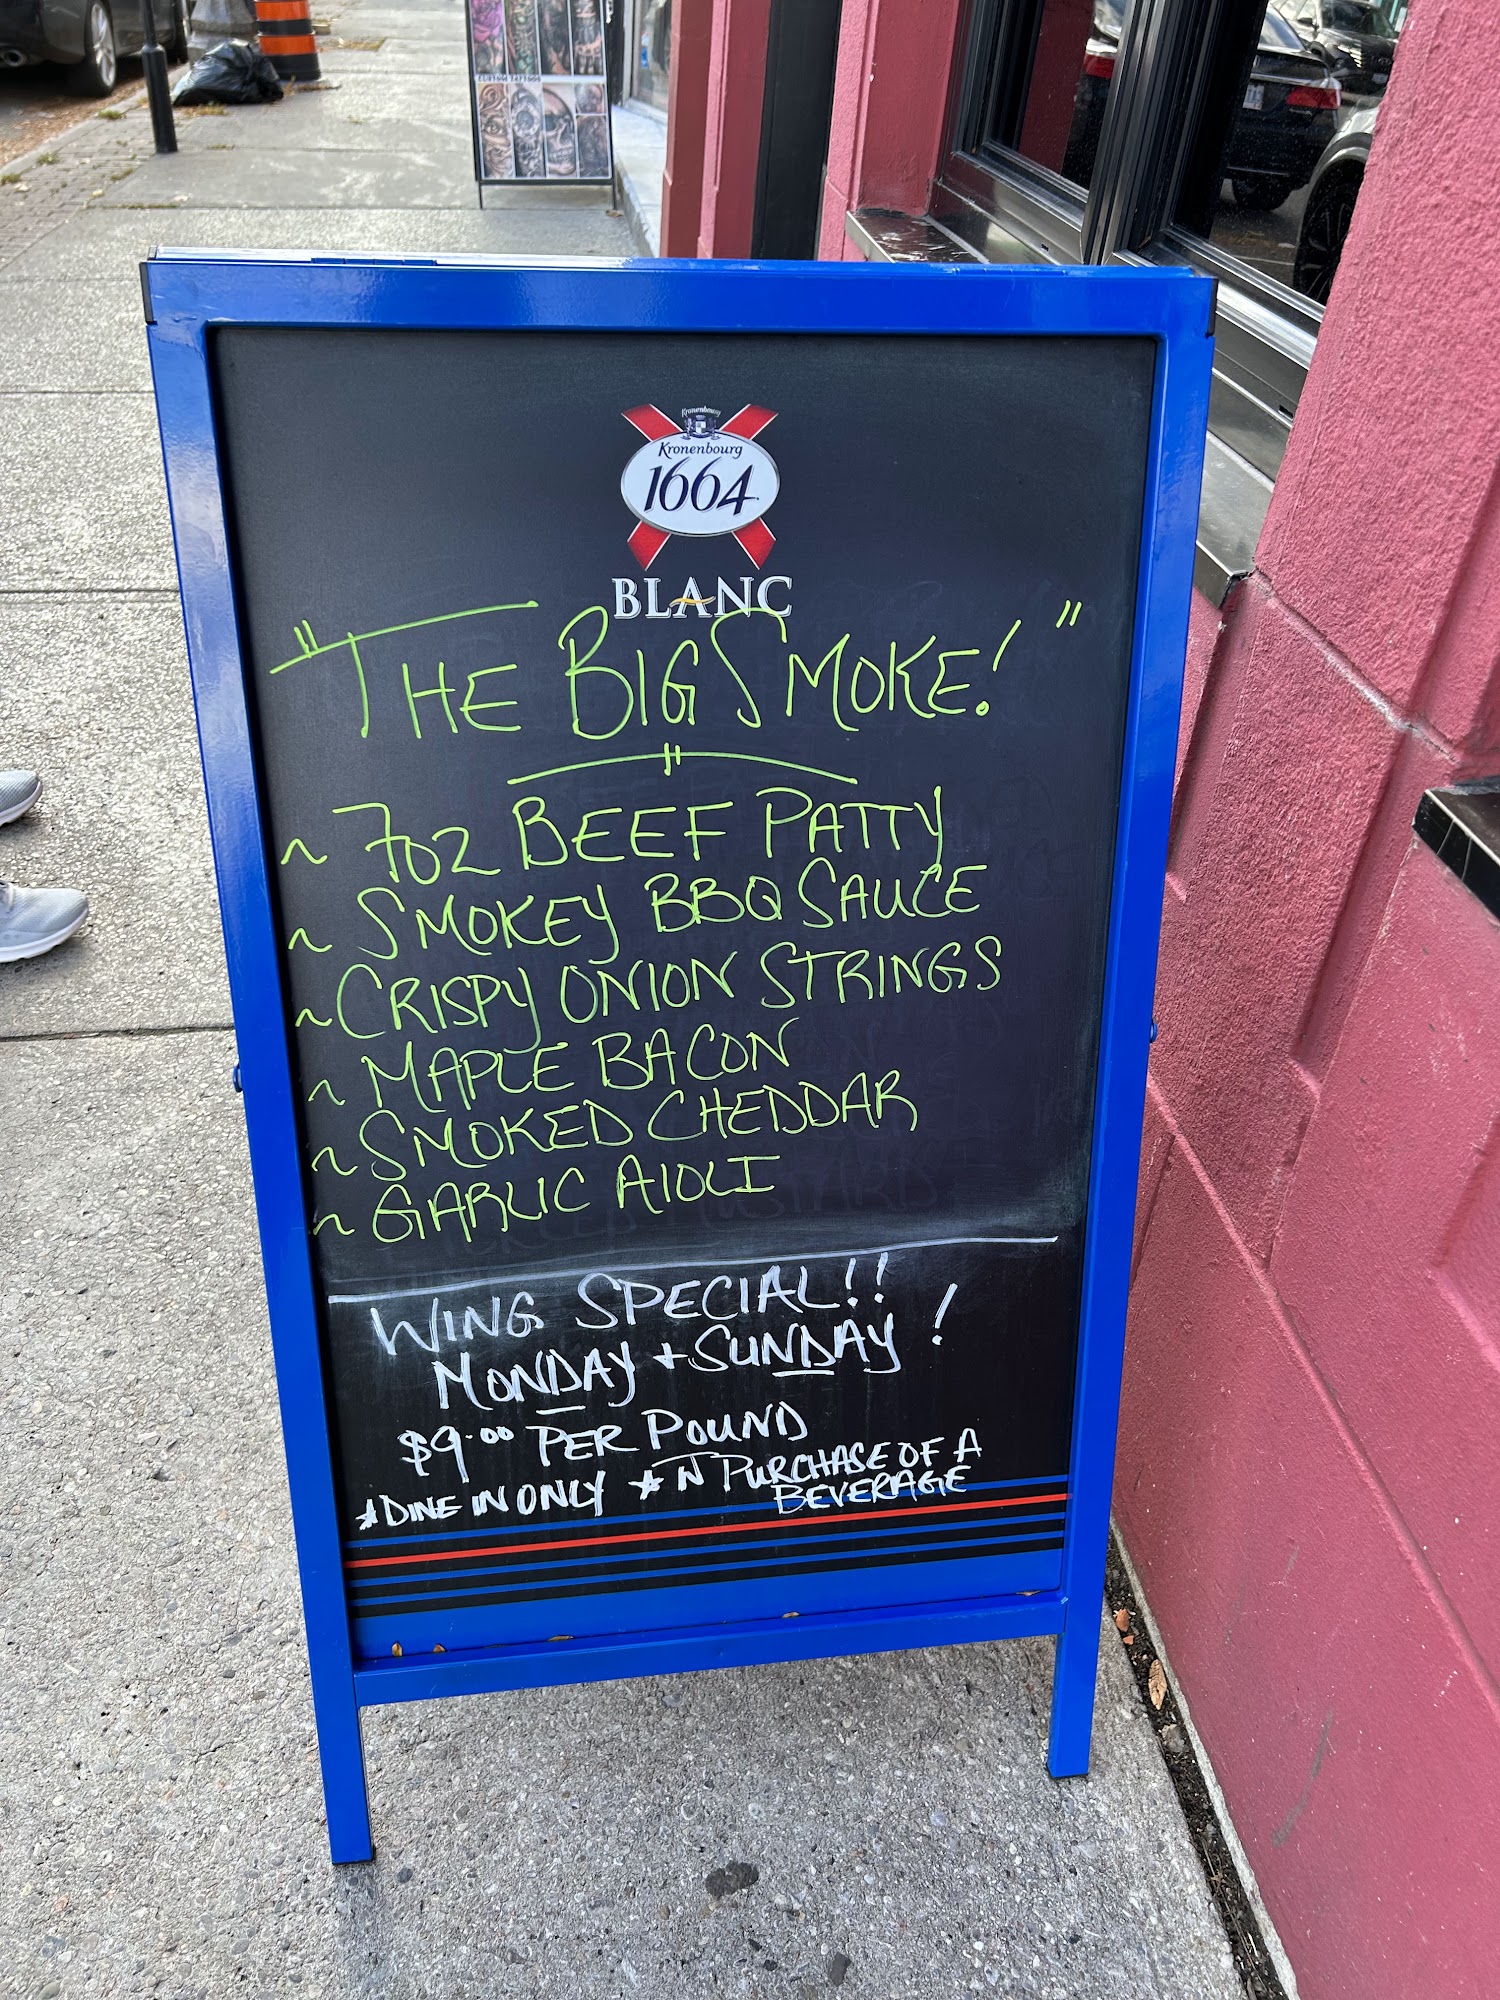 CUSTOM TATTOOS
Kronenbourg
Kronenbourg
1664
BLANC
"THE BIG SMOKE!"
~ 7oz BEEF PATTY
~ SMOKEY BBQ SAUCE
~ CRISPY ONION STRINGS
~ MAPLE BACON
~ SMOKED CHEDDAR
~ GARLIC AIOLI
WING SPECIAL!!
MONDAY + SUNDAY!
$9.00 PER POUND
*DINE IN ONLY * PURCHASE OF A
BEVERAGE